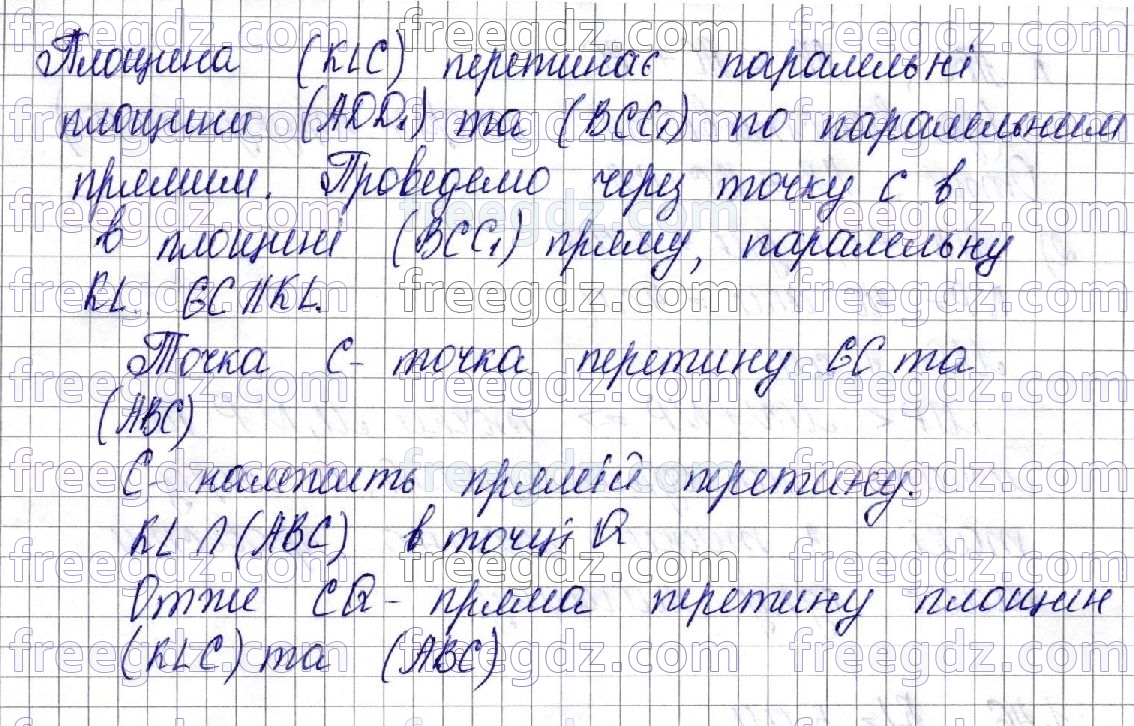 Площина (KLC) перетинає паралельні
площини (ADD₁) та (BCC₁) по паралельним
прямим. Проведемо через точку C в
в площині (BCC₁) пряму, паралельну
KL. GC || KL.
Точка C - точка перетину GC та
(ABC)
C - належить прямій перетину.
KL ∩ (ABC) в точці Q
Отже CQ - пряма перетину площин
(KLC) та (ABC)
freegdz.com